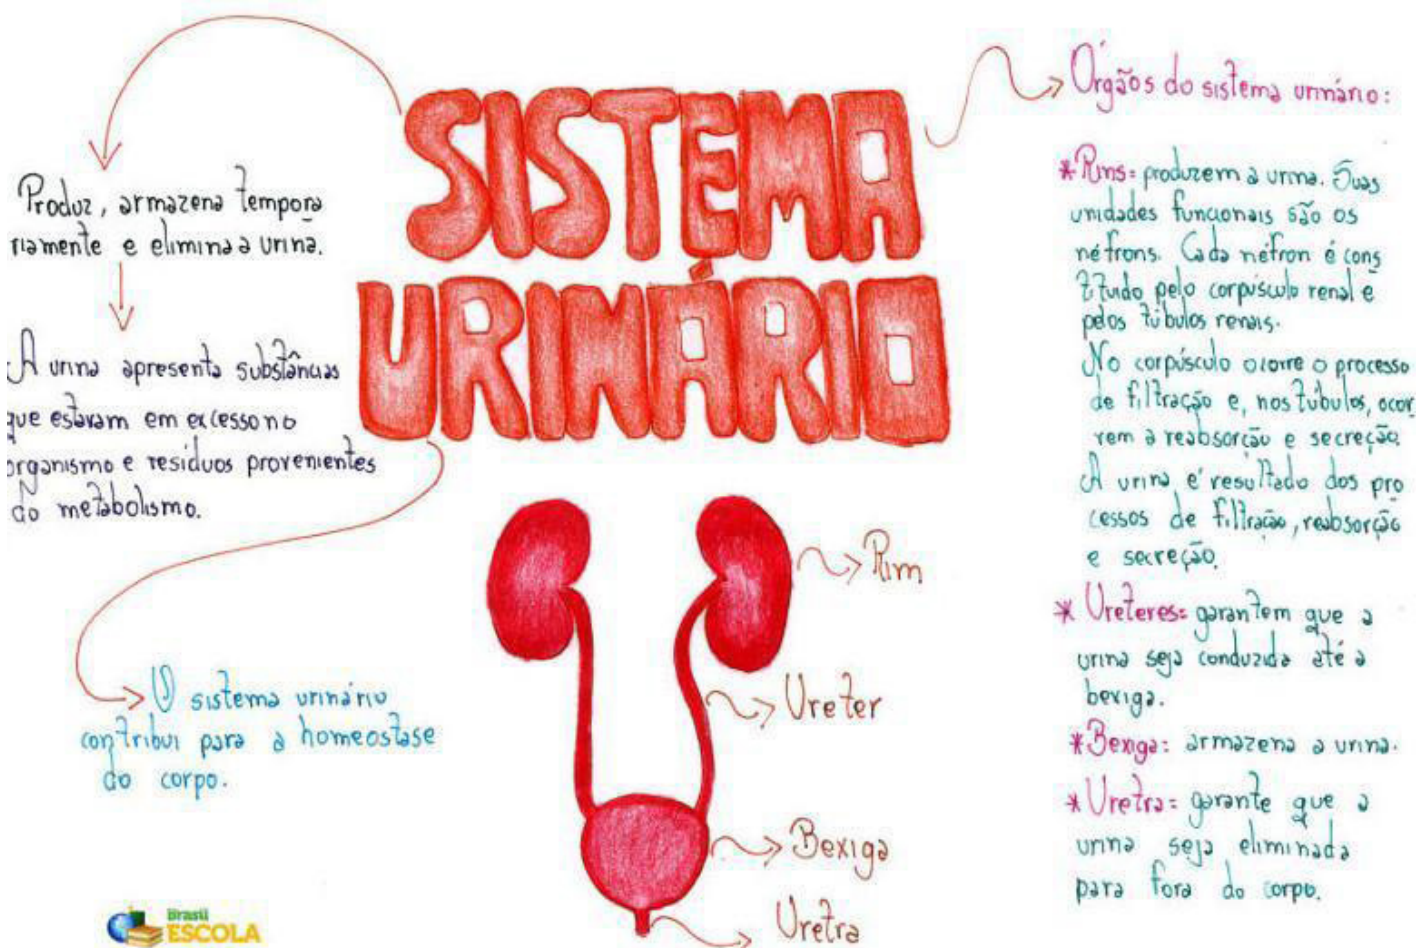 SISTEMA
URINÁRIO
Produz, armazena tempora
riamente e elimina a urina.
A urina apresenta substâncias
que estavam em excesso no
organismo e resíduos provenientes
do metabolismo.
O sistema urinário
contribui para a homeostase
do corpo.
Rim
Ureter
Bexiga
Uretra
Órgãos do sistema urinário:
*Rins: produzem a urina. Suas
unidades funcionais são os
néfrons. Cada néfron é cons
tituído pelo corpúsculo renal e
pelos túbulos renais.
No corpúsculo ocorre o processo
de filtração e, nos túbulos, ocor
rem a reabsorção e secreção.
A urina é resultado dos pro
cessos de filtração, reabsorção
e secreção.
* Ureteres: garantem que a
urina seja conduzida até a
bexiga.
*Bexiga: armazena a urina.
*Uretra: garante que a
urina seja eliminada
para fora do corpo.
Brasil
ESCOLA